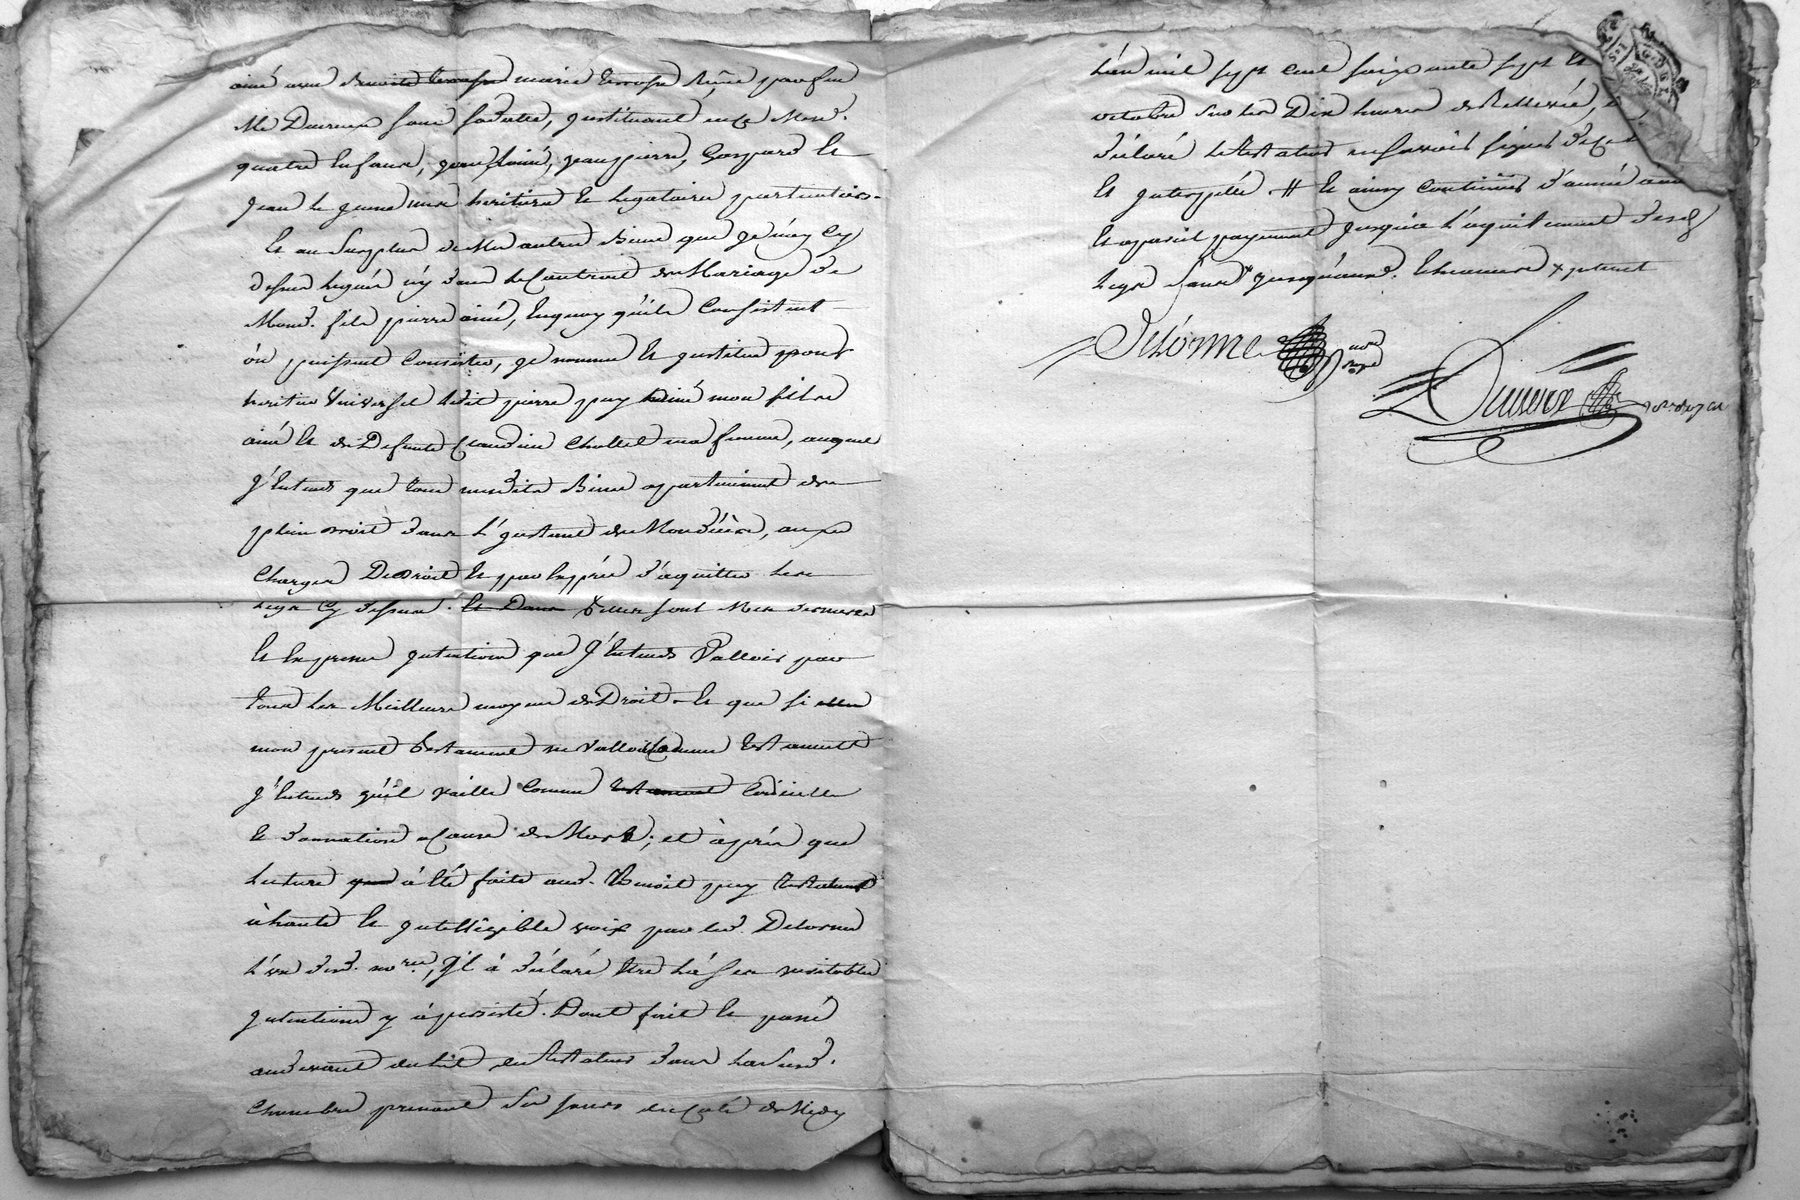 ainé avec demoiselle marie Terrasse Reçue par feu
Me Ducreux sans sa datte, justituant en ce mond.
quatre Enfans, jean lainé, jean pierre, Gaspard Et
jean le jeune mes heritiers Et legataires particuliers.
Et au Surplus de Mes autres Biens que je n'ay Cy
dessus legués n'y dans le Contrat de Mariage de
Mond. fils pierre ainé, En quoy qu'ils Consistent
où puissent Consister, je nomme Et justitue pour
heritier Universel ledit pierre puy lainé mon fils
ainé Et de Defunte Claudine Chollet ma femme, auquel
j'Entends que tous mesdits Biens appartiennent de
plein droit dans l'jnstant de Mon Décès, aux
Charges De droit Et par Exprès d'aquitter les
legs Cy dessus. Et Dans telles sont Mes dernieres
Et Expresses jntentions que j'Entends Valloir par
tous les Meilleurs moyens de Droit Et que si
mon present testament ne valloit Comme testament
j'Entends qu'il vaille Comme testament Codicille
Et donnation a Cause de Mort; et après que
lecture à Eté faite aud. Benoit puy testateur
à haute Et jntelligible voix par led. Delorme
l'un desd. nores, Il à déclaré Etre là ses veritables
jntentions y à persisté. Dont fait Et passé
audevant du lit du testateur dans la susd.
Chambre prenant Ses jours du Coté de Midy
L'an mil sept cent soixante sept Et
octobre sur les Dix heures de Relevée,
déclaré le testateur ne savoir signer de ce
Et jnterpellé # Et ainsy Continüer d'année
Et apareil payement jusqu'a l'aquitement desd
legs Sans jusqu'auxd. Echeances
Delorme nore royal
Ducreux